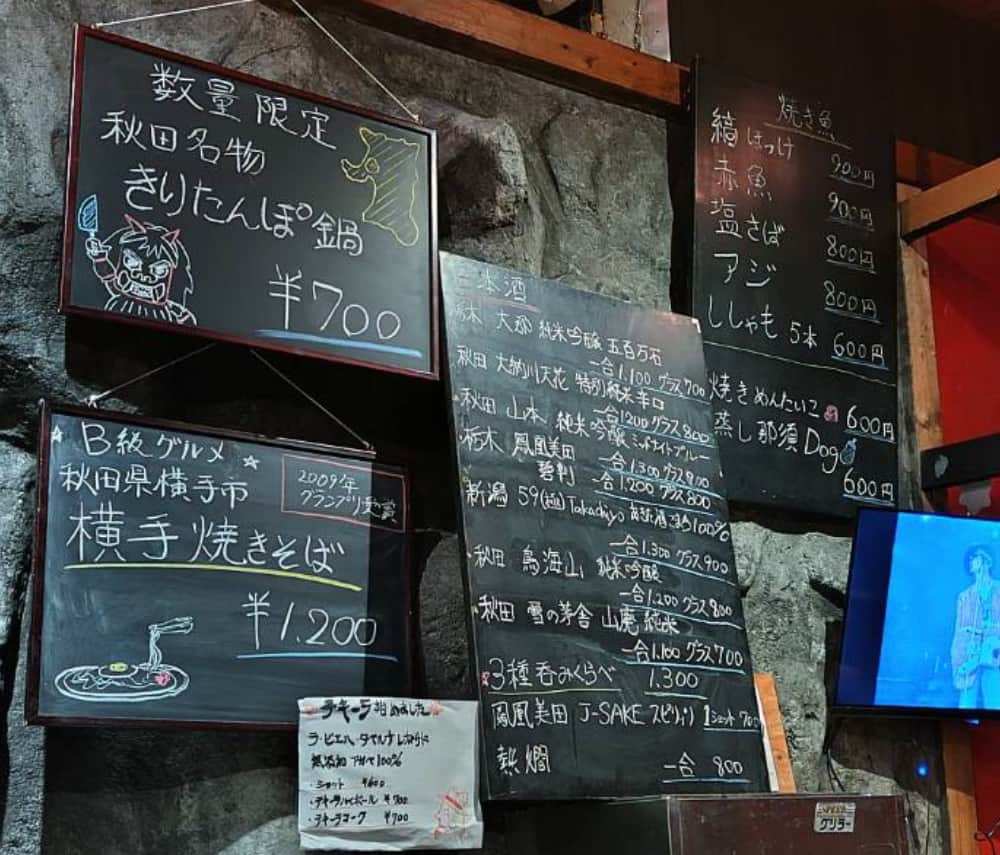 数量限定
秋田名物
きりたんぽ鍋
¥700
B級グルメ
秋田県横手市
2009年
グランプリ受賞
横手焼きそば
¥1.200
本酒
木 大那 純米吟醸 五百万石
一合1.100 グラス700
秋田 大納川天花 特別純米辛口
一合1200 グラス800
秋田 山本 純米吟醸 ミッドナイトブルー
一合1.300 グラス900
栃木 鳳凰美田
碧判
一合1.200 グラス800
新潟 59(越) Takachiyo 100%
一合1.300 グラス900
秋田 鳥海山 純米吟醸
一合1.200 グラス800
秋田 雪の茅舎 山廃 純米
一合1.100 グラス700
3種呑みくらべ 1.300
鳳凰美田 J-SAKE スピリッツ 1ショット
熱燗 一合 800
焼き魚
縞ほっけ 900円
赤魚 900円
塩さば 800円
アジ 800円
ししゃも 5本 600円
焼きめんたいこ 600円
蒸し那須Dog 600円
テキーラ始めました
無添加 アガベ100%
・ショット ¥600
・テキーラハイボール ¥700
・テキーラコーク ¥700
グリラー